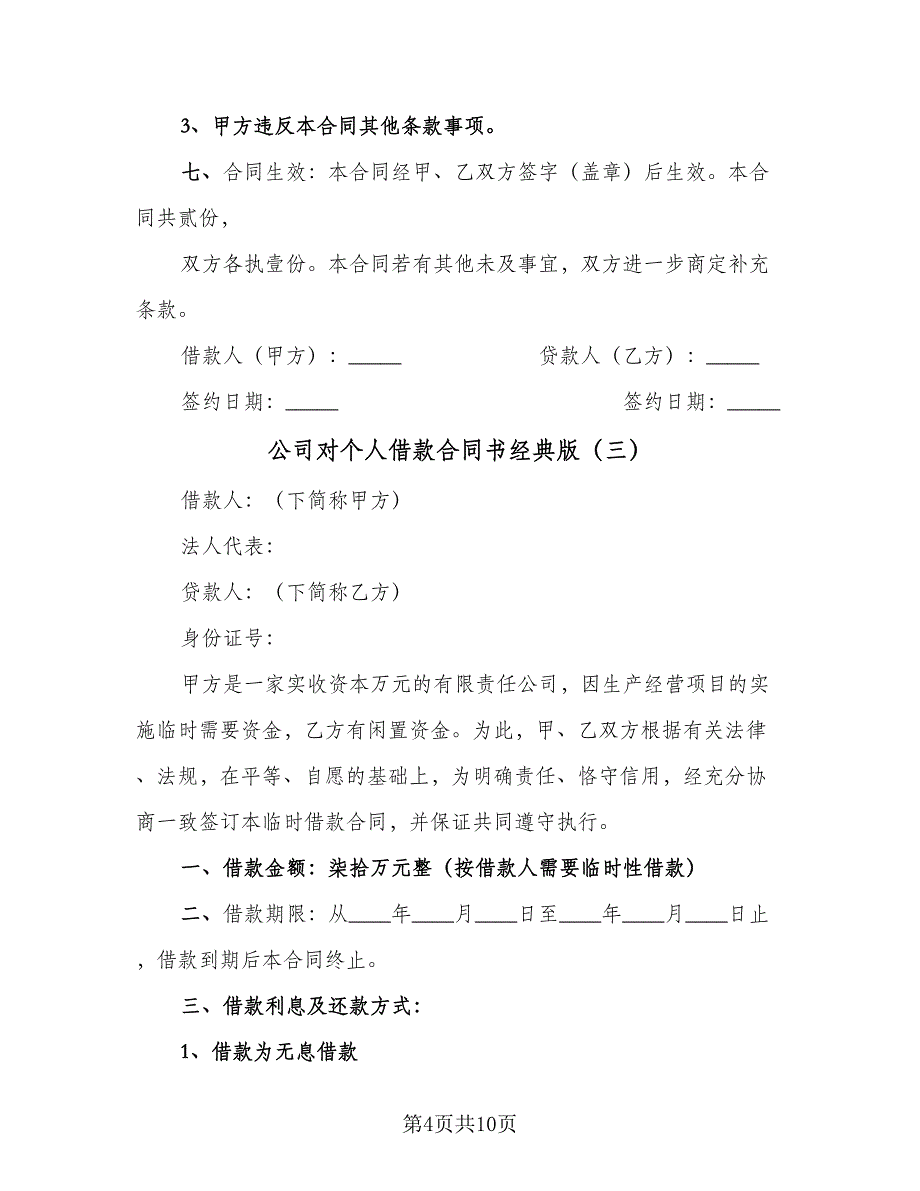 3、甲方违反本合同其他条款事项。
七、合同生效：本合同经甲、乙双方签字（盖章）后生效。本合
同共贰份，
双方各执壹份。本合同若有其他未及事宜，双方进一步商定补充
条款。
借款人（甲方）：_____ 贷款人（乙方）：_____
签约日期：_____ 签约日期：_____
公司对个人借款合同书经典版（三）
借款人：（下简称甲方）
法人代表：
贷款人：（下简称乙方）
身份证号：
甲方是一家实收资本万元的有限责任公司，因生产经营项目的实
施临时需要资金，乙方有闲置资金。为此，甲、乙双方根据有关法律
、法规，在平等、自愿的基础上，为明确责任、恪守信用，经充分协
商一致签订本临时借款合同，并保证共同遵守执行。
一、借款金额：柒拾万元整（按借款人需要临时性借款）
二、借款期限：从____年____月____日至____年____月____日止
，借款到期后本合同终止。
三、借款利息及还款方式：
1、借款为无息借款
第4页共10页